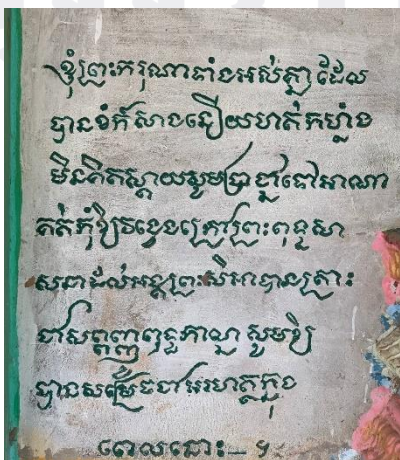 ខ្ញុំព្រះករុណាទាំងអស់គ្នាដែល
បានខំកសាងនឿយហត់កម្លាំង
មិនគិតស្តាយសូមប្រាថ្នាទៅអាណា
គត់កុំឱ្យចង្វេងក្រៅព្រះពុទ្ធសា
សនាដល់អង្គព្រះសិអាបានត្រាះ
ជាសព្វញ្ញូពុទ្ធភាណ្ឌ សូមឱ្យ
បានសម្រេចជាអរហត្តក្នុង
ពេលនោះ— ។